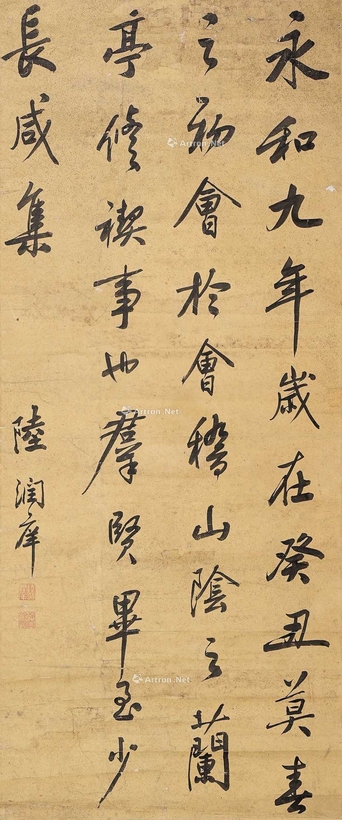 永和九年歲在癸丑莫春
之初會於會稽山陰之蘭
亭修禊事也羣賢畢至少
長咸集
陸潤庠
Artron.Net
Artron.Net
Artron.Net